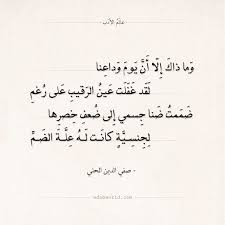 عالم الأدب
وَما ذاكَ إِلّا أَنَّ يَومَ وَداعِنا
لَقَد غَفَلَت عَينُ الرَقيبِ عَلى رُغمِ
ضَمَمتُ ضَنا جِسمي إِلى ضُعفِ خَصرِها
لِجِنسِيَّةٍ كانَت لَهُ عِلَّةَ الضَمِّ
- صفي الدين الحلي
adabworld.com